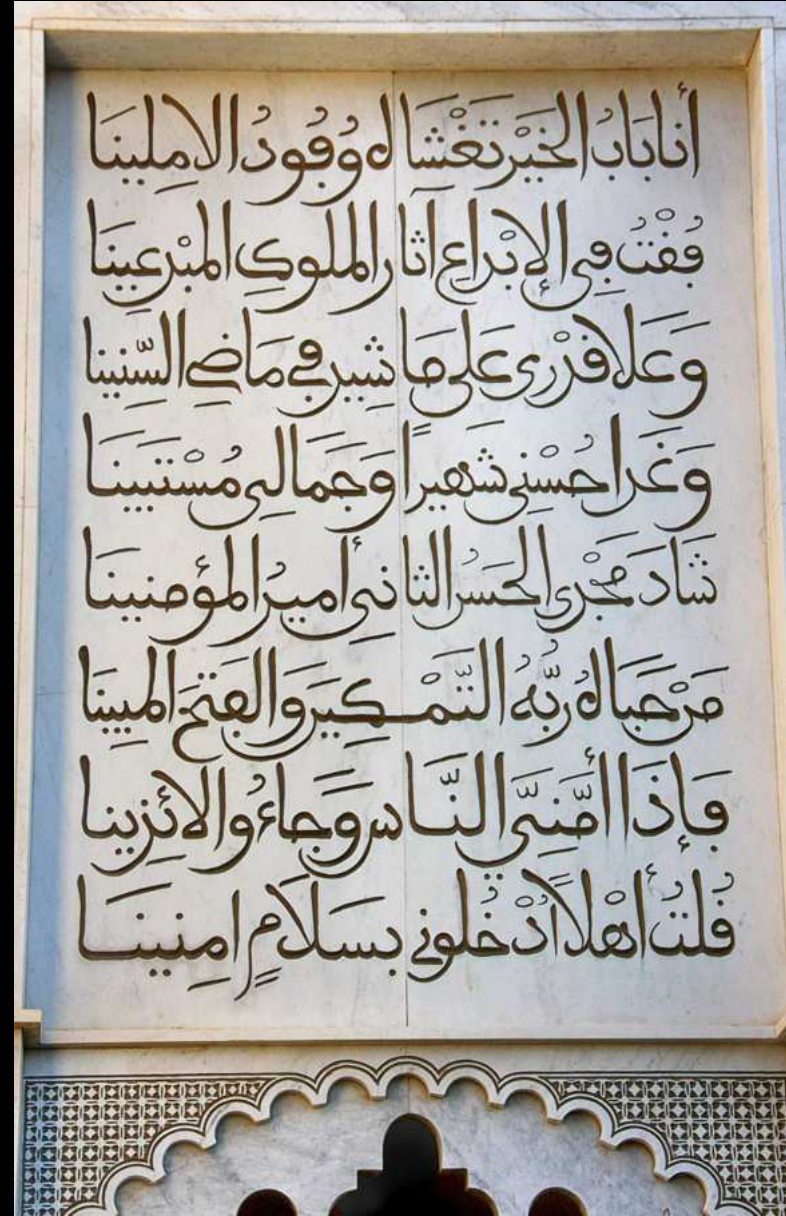 أنا بَابُ الخَيْر تَغْشَاه وُفُودُ الامِلينَا
فُقْتُ فِي الإبْداعِ آثارَ الملوكِ المبْدِعِينَا
وَعَلا قَدْرِي عَلى مَا شِيدَ في مَاضِي السِّنِينا
وَغَدا حُسْنِي شَهيراً وَجَمالِي مُسْتَبينَا
شَادَ مَجْدِي الحَسَنُ الثانِي أميرُ المؤمنينَا
مَنْ حَبَاهُ رَبُّهُ التَّمْكِينَ وَالفَتحَ المبِينَا
فَإذَا أمَّنِيَ النَّاسُ وَجاءُوا لائِذِينا
قُلتُ أهْلاً أدْخُلونِي بسَلاَمٍ امِنِينَا